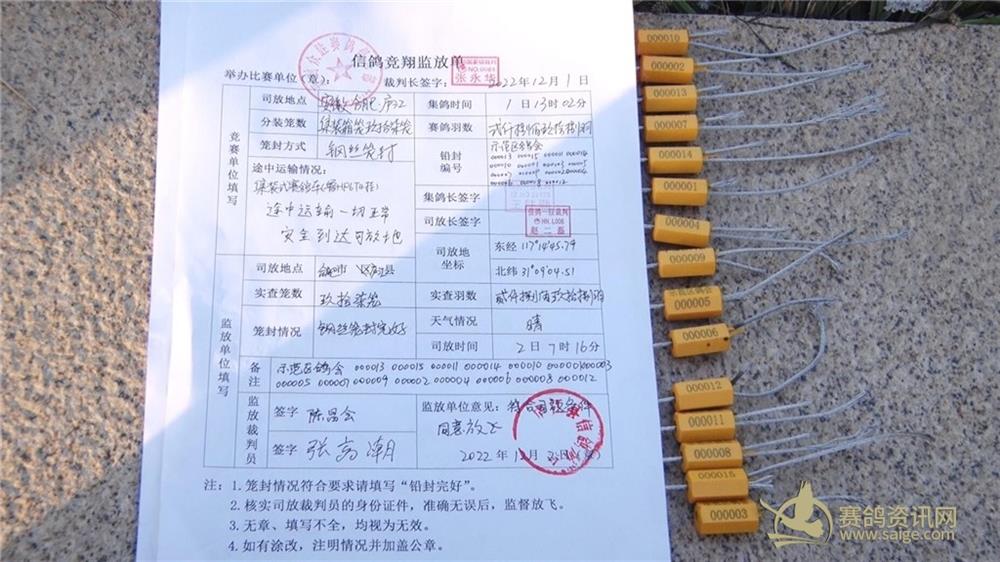 信鸽竞翔监放单
举办比赛单位(章): 裁判长签字: 2022年12月1日
张永华
司放地点 安徽合肥庐江 集鸽时间 1日13时02分
分装笼数 集装箱笼玖拾柒笼 赛鸽羽数 贰仟捌佰玖拾捌羽
笼封方式 钢丝笼封 铅封编号 示范区鸽会
000013 000015 000011 000014
途中运输情况:
途中运输一切正常
安全到达司放地
集鸽长签字
司放长签字 信鸽一级裁判
赵二磊
竞赛单位填写
司放地点 司放地坐标 东经 117°14'45.79
北纬 31°09'04.51
实查笼数 玖拾柒笼 实查羽数 贰仟捌佰玖拾捌羽
笼封情况 钢丝笼封完好 天气情况 晴
司放时间 2日7时16分
监放单位填写
备注 示范区鸽会 000013 000015 000011 000014 000010 000007 000001 000003
000005 000009 000002 000004 000006 000008 000012
监放裁判员
签字 陈昌会 监放单位意见: 符合司放条件
同意放飞
签字 张高潮 2022年12月2日(章)
注: 1.笼封情况符合要求请填写“铅封完好”。
2.核实司放裁判员的身份证件，准确无误后，监督放飞。
3.无章、填写不全，均视为无效。
4.如有涂改，注明情况并加盖公章。
000010
000002
000013
000007
000014
000001
000004
000009
000005
000006
000012
000011
000008
000015
000003
赛鸽资讯网
www.saige.com